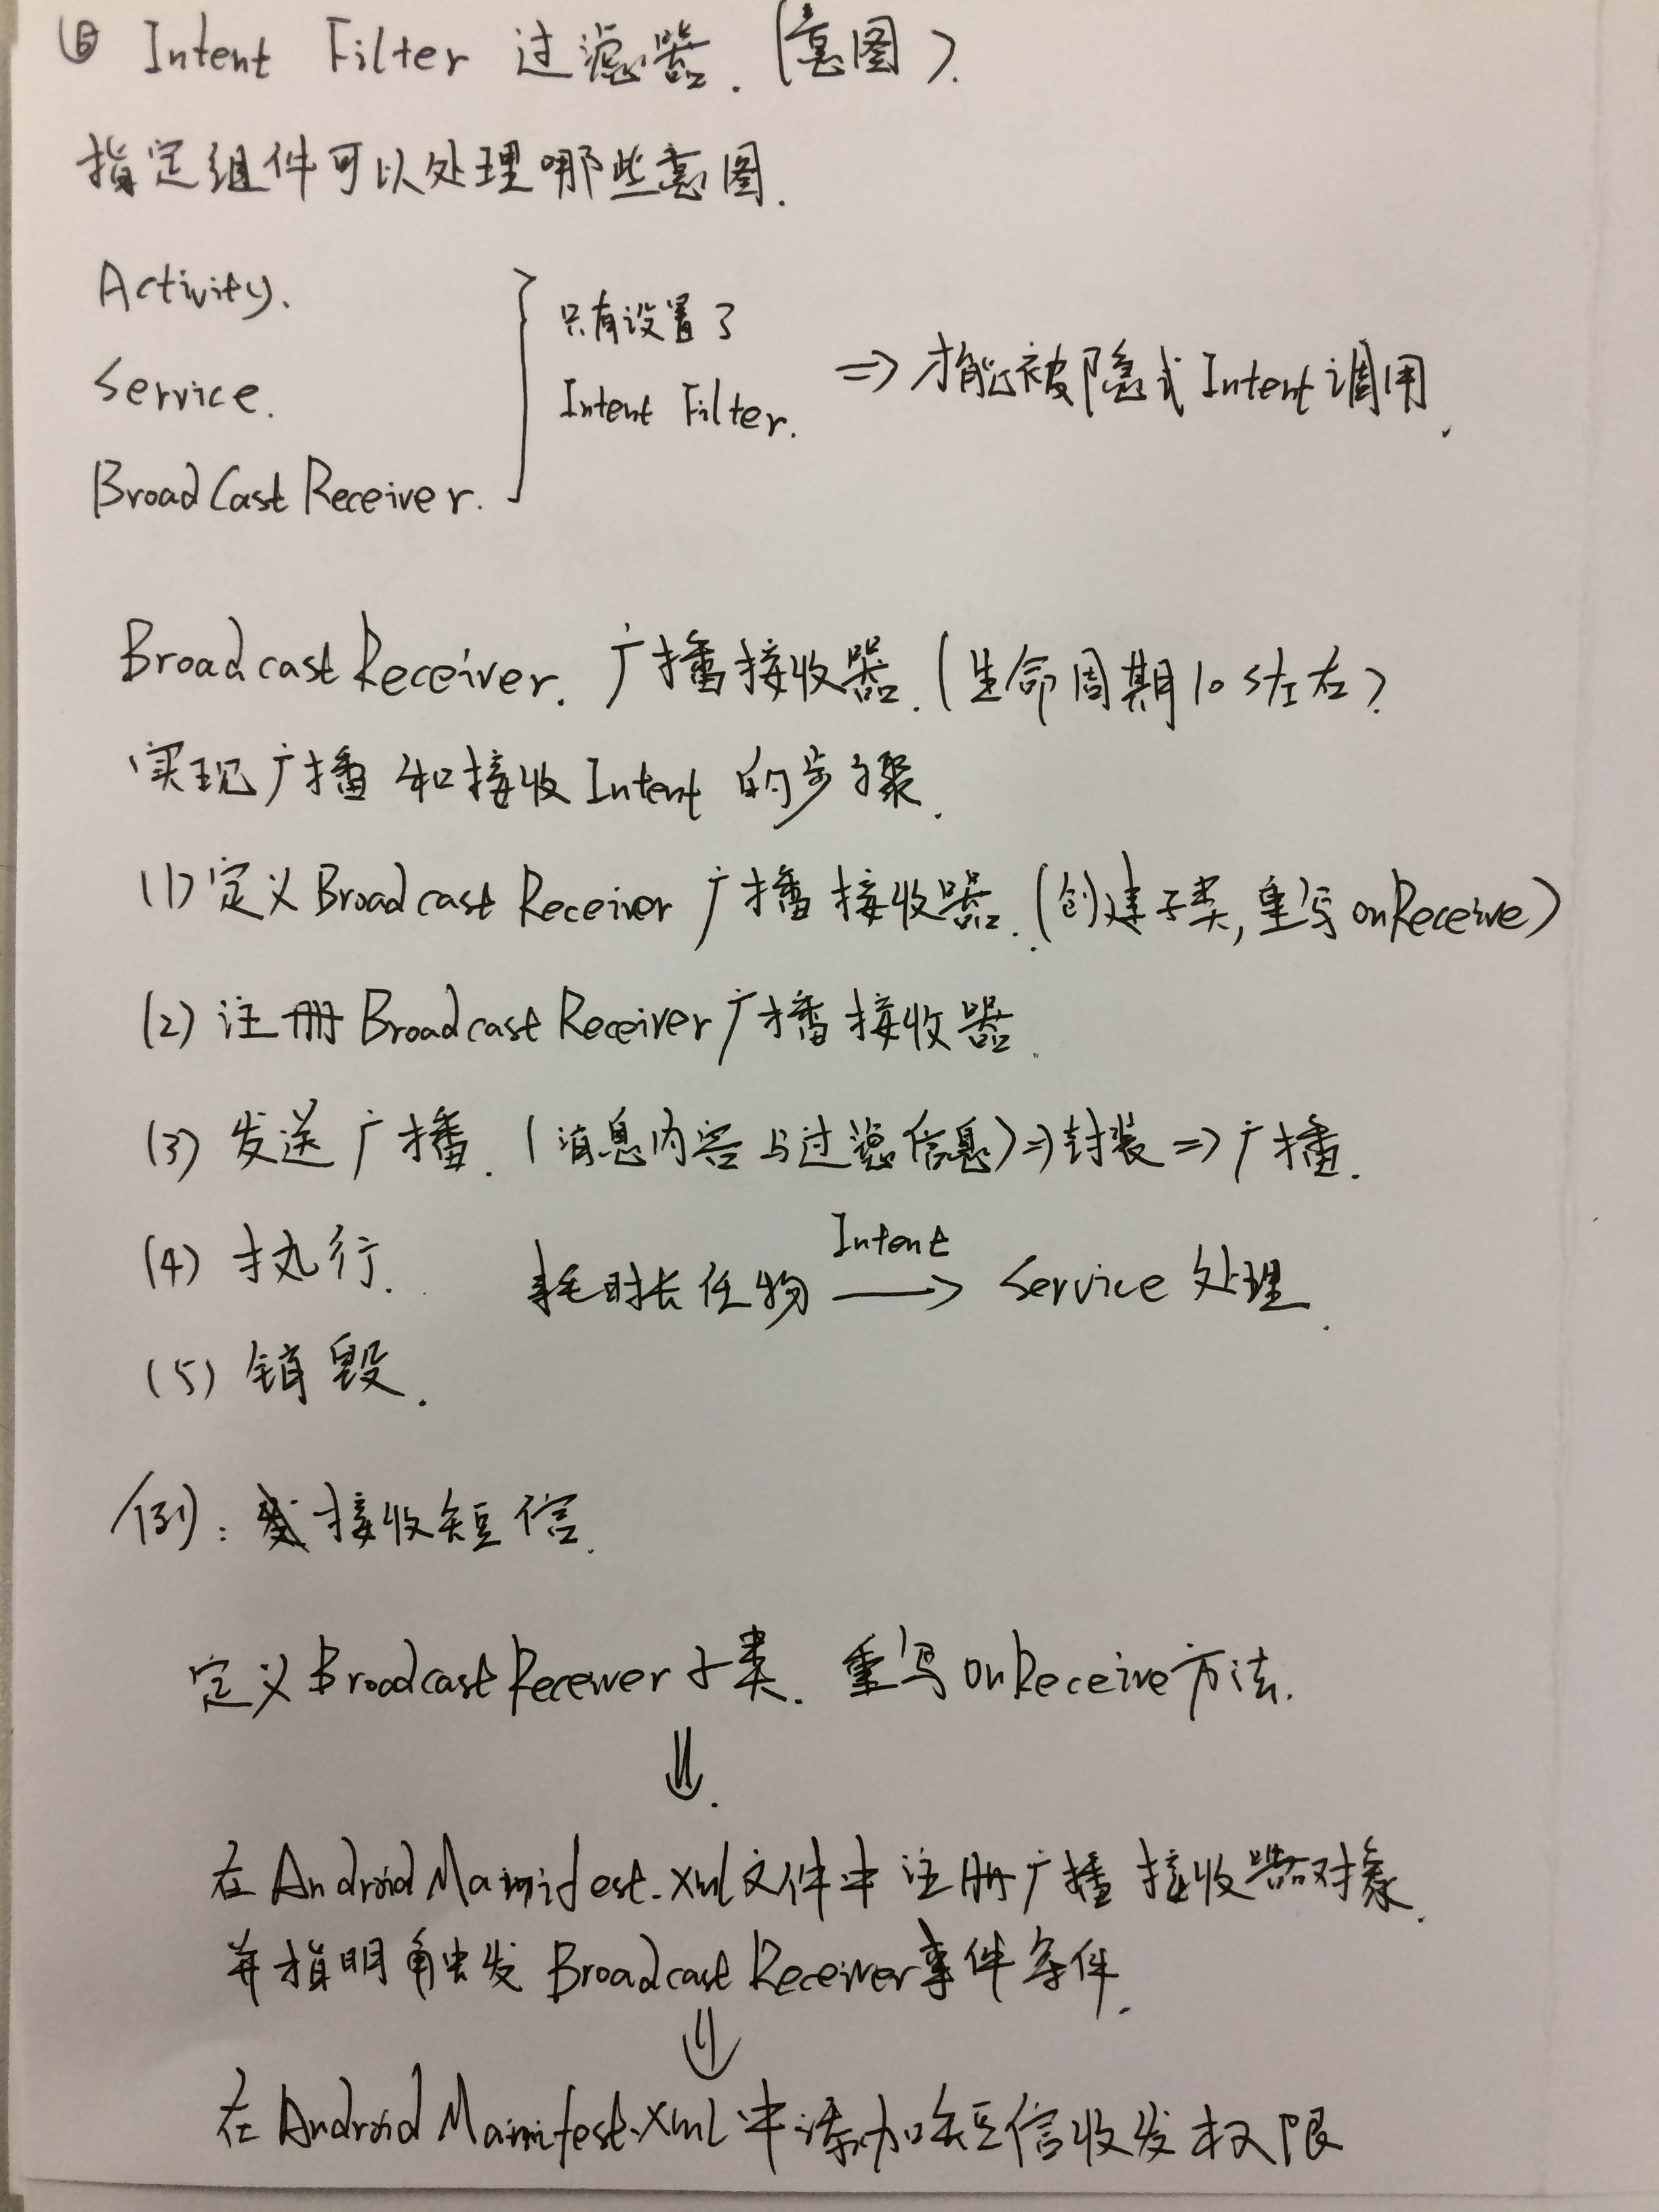 ⑤ Intent Filter 过滤器.(意图).
指定组件可以处理哪些意图.
Activity.
Service.
BroadCast Receiver.
只有设置了
Intent Filter.
⇒ 才能被隐式Intent调用.
Broadcast Receiver. 广播接收器.(生命周期10s左右)
实现广播和接收Intent的步骤.
(1)定义Broadcast Receiver广播接收器.(创建子类,重写onReceive)
(2)注册Broadcast Receiver广播接收器.
(3)发送广播.(消息内容与过滤信息)⇒封装⇒广播.
(4)执行. 耗时长任物 Intent → Service处理.
(5)销毁.
例:接收短信.
定义Broadcast Receiver子类.重写onReceive方法.
⇓
在AndroidMainifest.xml文件中注册广播接收器对象.
并指明触发Broadcast Receiver事件条件.
⇓
在AndroidMainifest.xml中添加短信收发权限